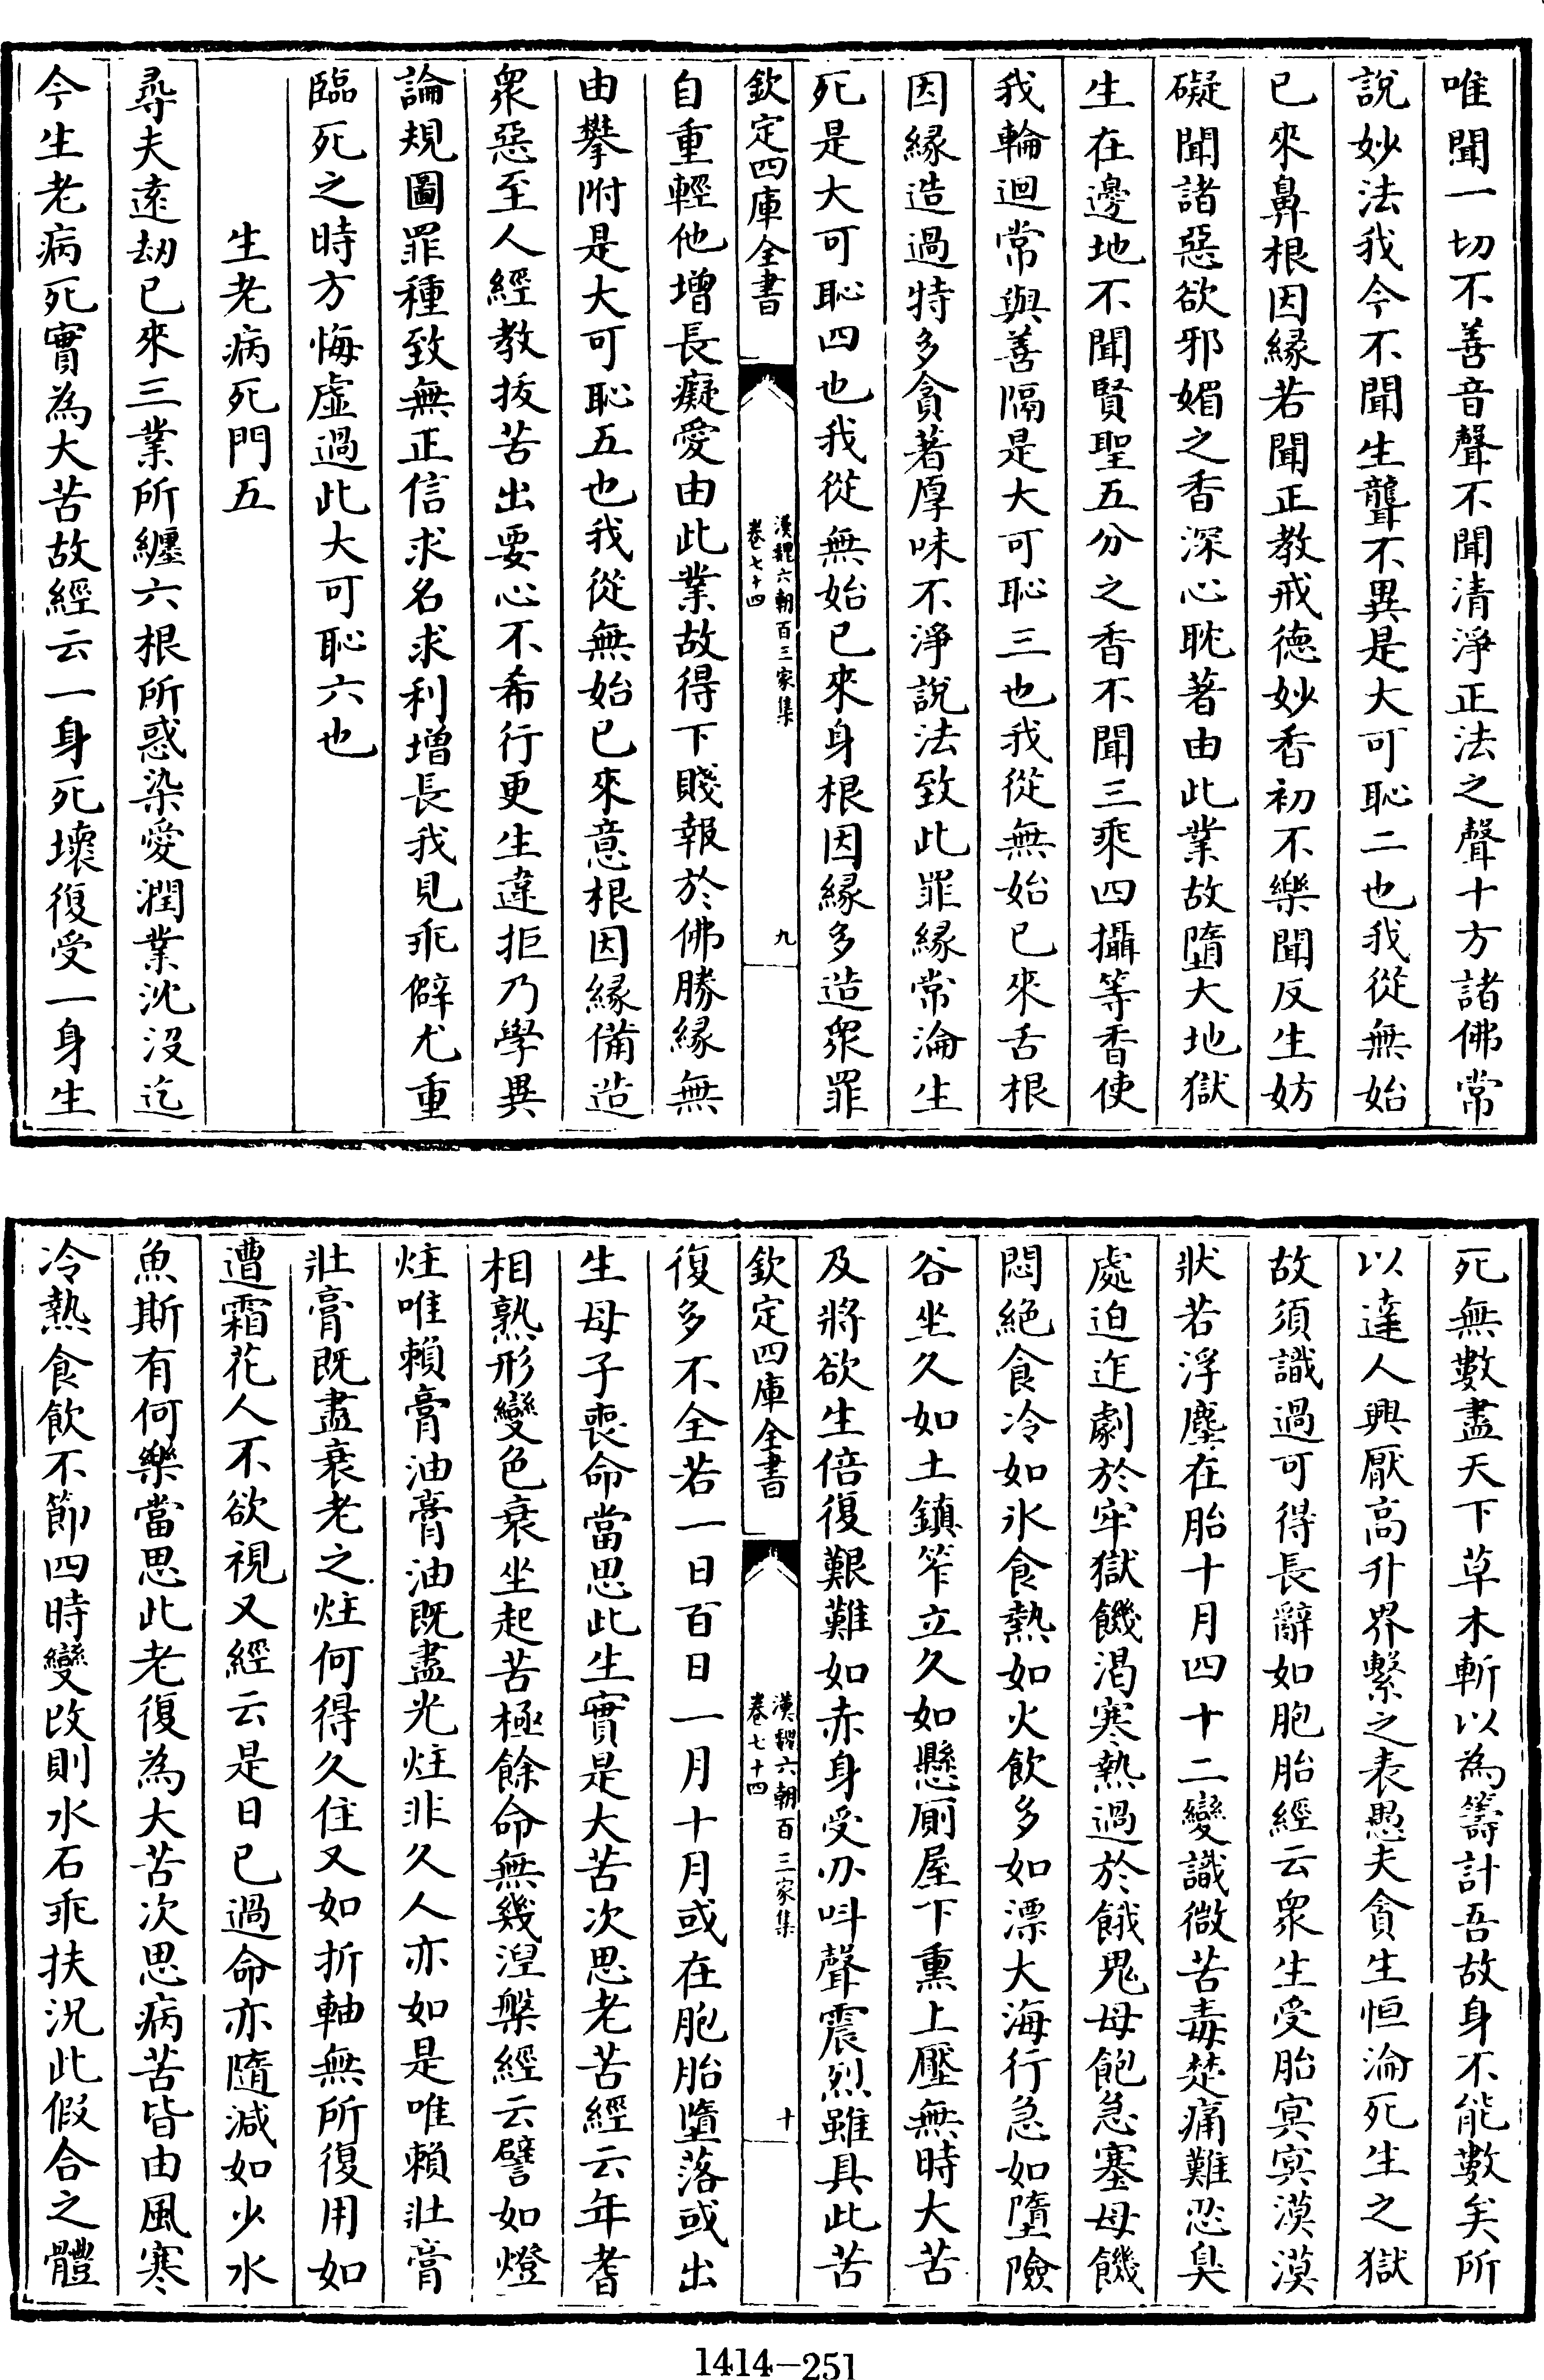 唯聞一切不善音聲不聞清淨正法之聲十方諸佛常
說妙法我今不聞生聾不異是大可恥二也我從無始
已來鼻根因緣若聞正教戒德妙香初不樂聞反生妨
礙聞諸惡欲邪媚之香深心耽著由此業故墮大地獄
生在邊地不聞賢聖五分之香不聞三乘四攝等香使
我輪迴常與善隔是大可恥三也我從無始已來舌根
因緣造過特多貪著厚味不淨說法致此罪緣常淪生
死是大可恥四也我從無始已來身根因緣多造眾罪
欽定四庫全書
漢魏六朝百三家集
卷七十四
九
自重輕他增長癡愛由此業故得下賤報於佛勝緣無
由攀附是大可恥五也我從無始已來意根因緣備造
眾惡至人經教拔苦出要心不希行更生違拒乃學異
論規圖罪種致無正信求名求利增長我見乖僻尤重
臨死之時方悔虛過此大可恥六也
生老病死門五
尋夫遠劫已來三業所纏六根所惑染愛潤業沈沒迄
今生老病死實為大苦故經云一身死壞復受一身生
死無數盡天下草木斬以為籌計吾故身不能數矣所
以達人興厭高升界繫之表愚夫貪生恒淪死生之獄
故須識過可得長辭如胞胎經云眾生受胎冥冥漠漠
狀若浮塵在胎十月四十二變識微苦毒楚痛難忍臭
處迫迮劇於牢獄饑渴寒熱過於餓鬼母飽急塞母饑
悶絕食冷如氷食熱如火飲多如漂大海行急如墮險
谷坐久如土鎮笮立久如懸厠屋下熏上壓無時大苦
及將欲生倍復艱難如赤身受刅呌聲震烈雖具此苦
欽定四庫全書
漢魏六朝百三家集
卷七十四
十
復多不全若一日百日一月十月或在胞胎墮落或出
生母子喪命當思此生實是大苦次思老苦經云年耆
相熟形變色衰坐起苦極餘命無幾湼槃經云譬如燈
炷唯賴膏油膏油既盡光炷非久人亦如是唯賴壯膏
壯膏既盡衰老之炷何得久住又如折軸無所復用如
遭霜花人不欲視又經云是日已過命亦隨減如少水
魚斯有何樂當思此老復為大苦次思病苦皆由風寒
冷熱食飲不節四時變改則水石乖扶況此假合之體
1414-251